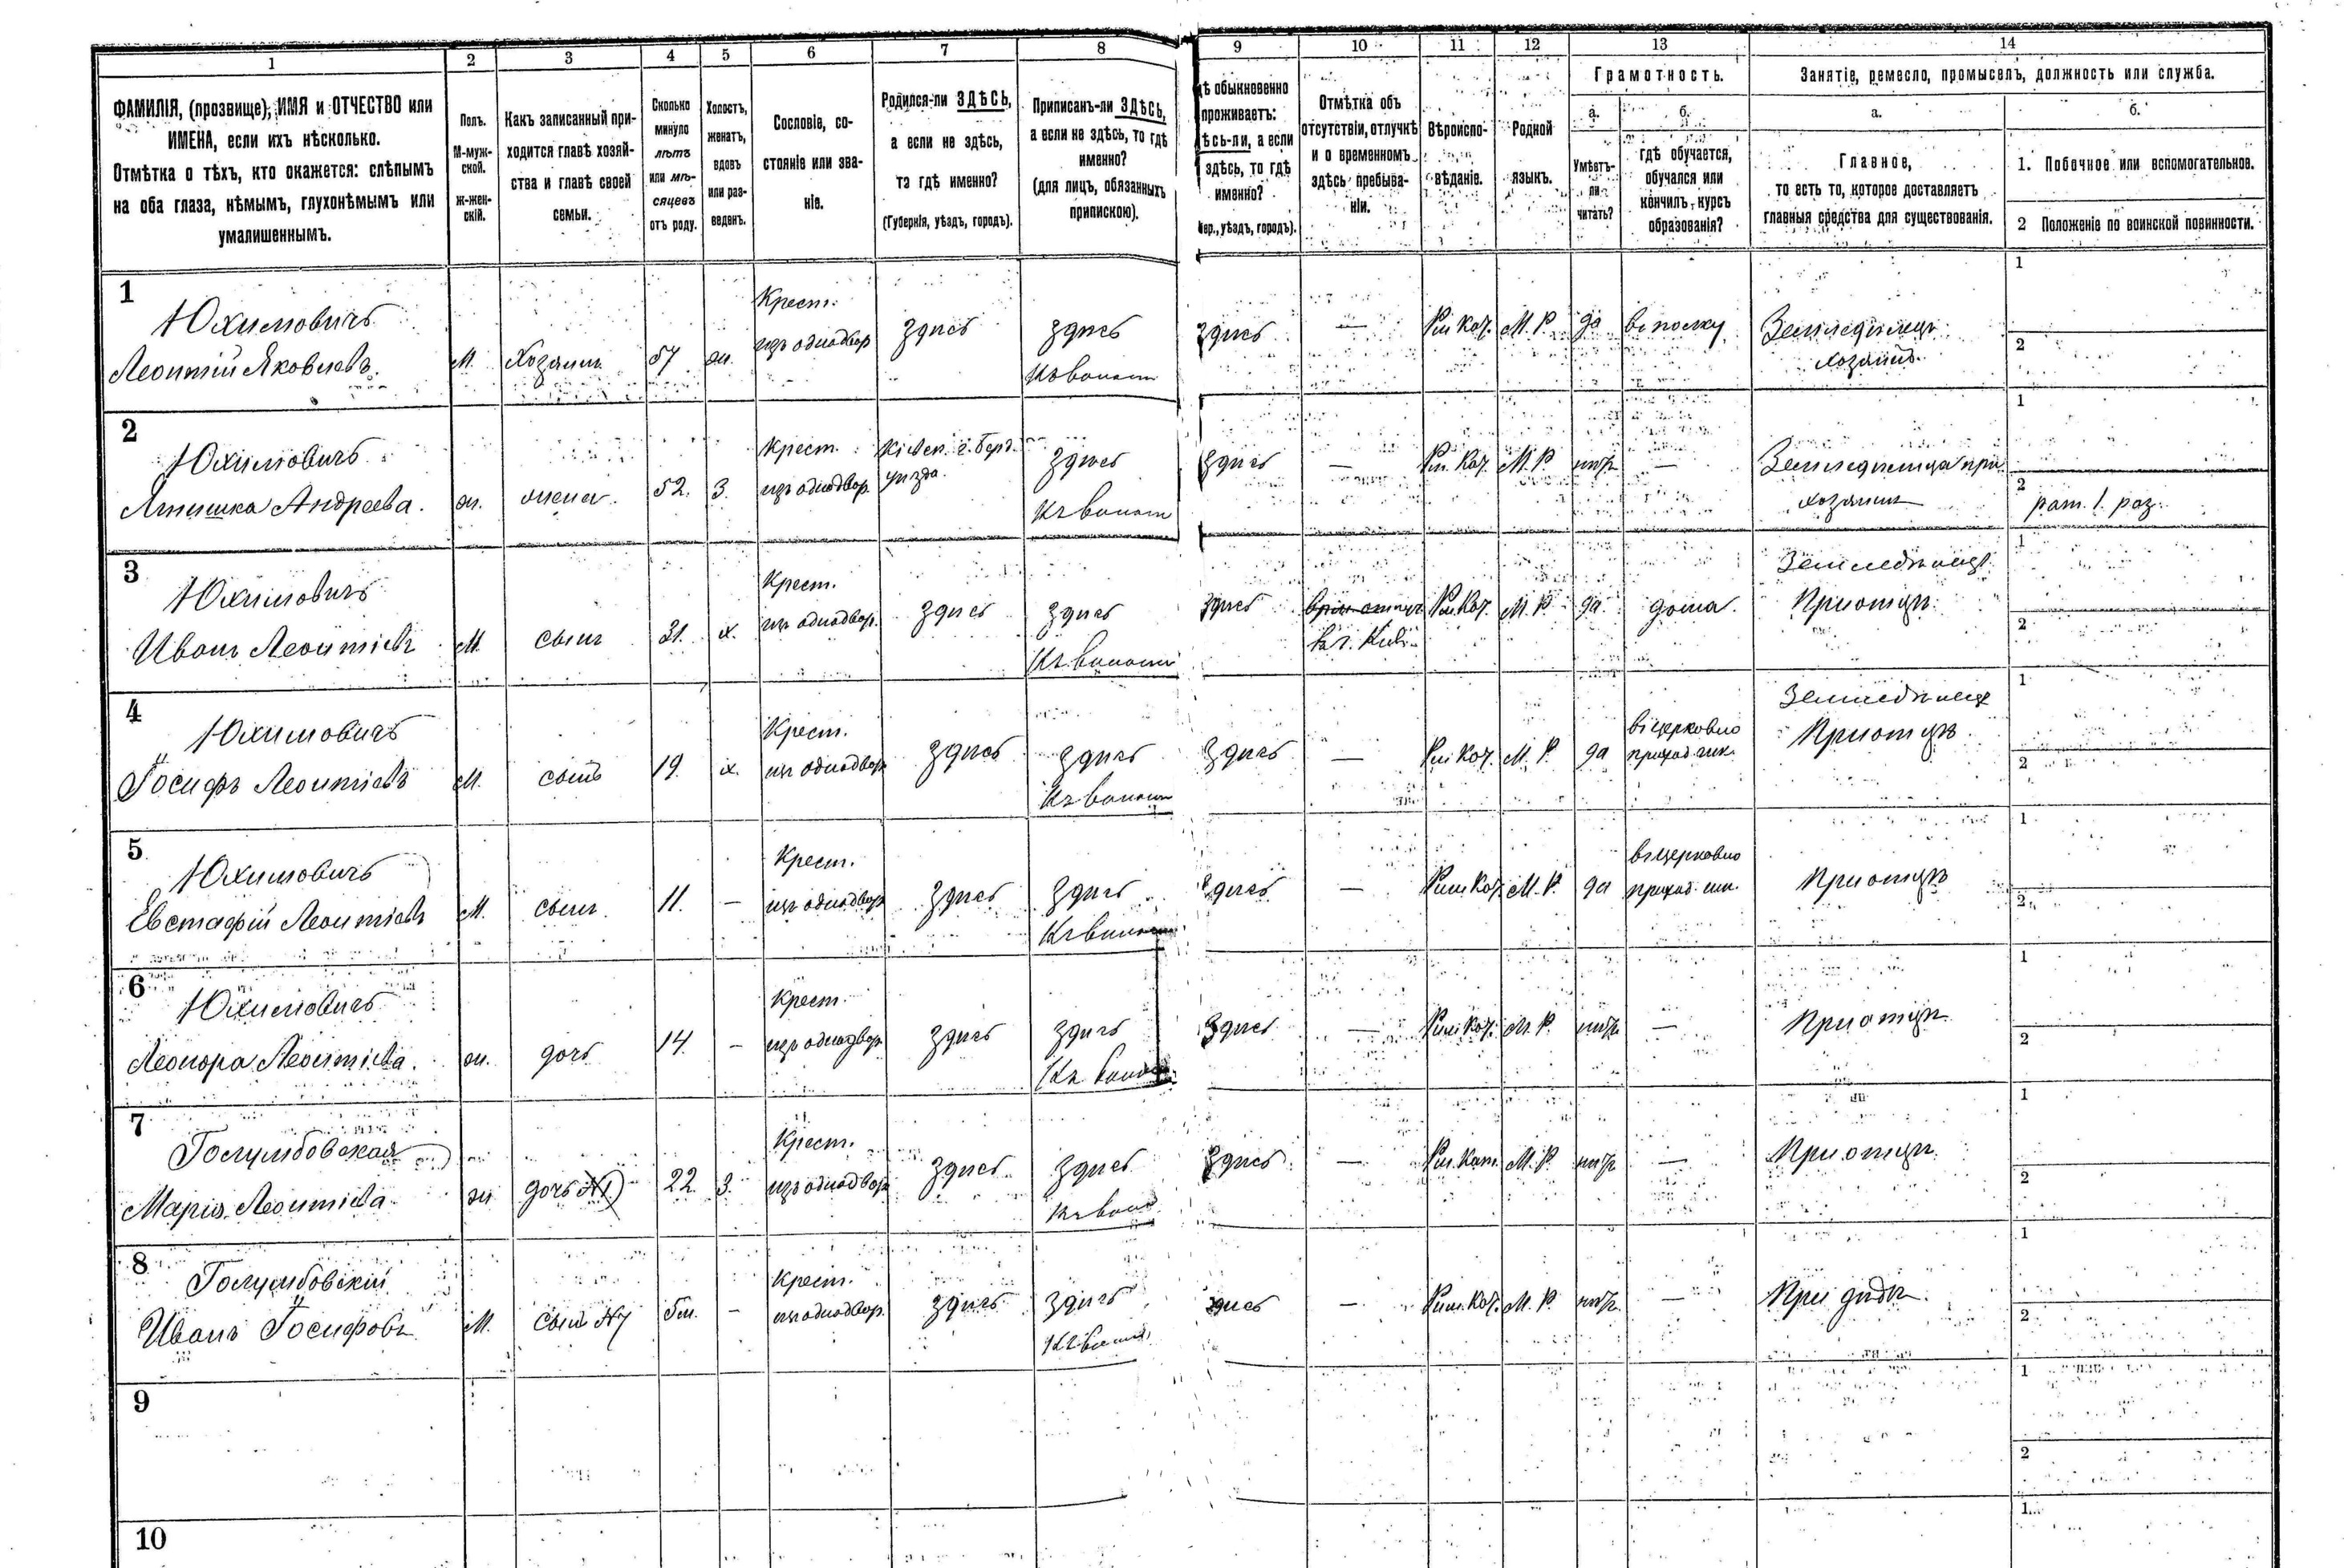 1 2 3 4 5 6 7 8 9 10 11 12 13 14
ФАМИЛІЯ, (прозвище), ИМЯ и ОТЧЕСТВО или
ИМЕНА, если ихъ нѣсколько.
Отмѣтка о тѣхъ, кто окажется: слѣпымъ
на оба глаза, нѣмымъ, глухонѣмымъ или
умалишеннымъ.
Полъ.
М-муж-
ской.
ж-жен-
скій.
Какъ записанный при-
ходится главѣ хозяй-
ства и главѣ своей
семьи.
Сколько
минуло
лѣтъ
или мѣ-
сяцевъ
отъ роду.
Холостъ,
женатъ,
вдовъ
или раз-
веденъ.
Сословіе, со-
стояніе или зва-
ніе.
Родился-ли ЗДѢСЬ,
а если не здѣсь,
то гдѣ именно?
(Губернія, уѣздъ, городъ).
Приписанъ-ли ЗДѢСЬ,
а если не здѣсь, то гдѣ
именно?
(для лицъ, обязанныхъ
припискою).
дѣ обыкновенно
проживаетъ:
ѣсь-ли, а если
здѣсь, то гдѣ
именно?
бер., уѣздъ, городъ).
Отмѣтка объ
отсутствіи, отлучкѣ
и о временномъ
здѣсь пребыва-
ніи.
Вѣроиспо-
вѣданіе.
Родной
языкъ.
Грамотность.
а.
Умѣетъ-
ли
читать?
б.
гдѣ обучается,
обучался или
кончилъ курсъ
образованія?
Занятіе, ремесло, промыселъ, должность или служба.
а.
Главное,
то есть то, которое доставляетъ
главныя средства для существованія.
б.
1. Побочное или вспомогательное.
2 Положеніе по воинской повинности.
1
Юхимовичъ
Леонтій Яковлевъ
М.
Хозяинъ
57
ж.
Крест.
изъ однодвор
здѣсь
здѣсь
здѣсь
—
Рим Кат.
М. Р.
да
въ полку
Земледѣлецъ
хозяинъ
1
2
2
Юхимовичъ
Андреева.
ж.
жена
52.
З.
Крест.
изъ однодвор.
Кіевск. г. Берд.
уѣзда.
здѣсь
здѣсь
—
Рим. Кат.
М. Р.
нѣтъ
—
хозяинѣ
1
2
рат. 1. раз.
3
Юхимовичъ
Иванъ Леонтіевъ
М.
сынъ
21.
х.
Крест.
изъ однодвор.
здѣсь
здѣсь
здѣсь
Рим. Кат.
М. Р.
да
дома.
Земледѣлецъ
При отцѣ
1
2
4
Юхимовичъ
Іосифъ Леонтіевъ
М.
сынъ
19.
х.
Крест.
изъ однодвор
здѣсь
здѣсь
здѣсь
—
Рим Кат.
М. Р.
да
въ церковно
приход шк.
Земледѣлец
При отцѣ
1
2
5
Юхимовичъ
Евстафій Леонтіевъ
М.
сынъ
11.
—
Крест.
изъ однодвор
здѣсь
здѣсь
здѣсь
—
Рим Кат.
М. Р.
да
въ церковно
приход. шк.
При отцѣ
1
2
6
Юхимовичъ
Леонора Леонтіева.
ж.
дочь
14.
—
Крест.
изъ однодвор
здѣсь
здѣсь
здѣсь
—
Рим Кат.
М. Р.
нѣтъ
—
При отцѣ
1
2
7
Голумбовская
Марія Леонтіева
ж
дочь №1
22.
З.
Крест.
изъ однодвор
здѣсь
здѣсь
здѣсь
—
Рим. Кат.
М. Р.
нѣтъ
—
При отцѣ
1
2
8
Голумбовскій
Иванъ Іосифовъ
М.
Сынъ №7
—
Крест.
изъ однодвор.
здѣсь
здѣсь
здѣсь
—
Рим. Кат.
М. Р.
нѣтъ
—
При дѣдѣ.
1
2
9
1
2
10
1